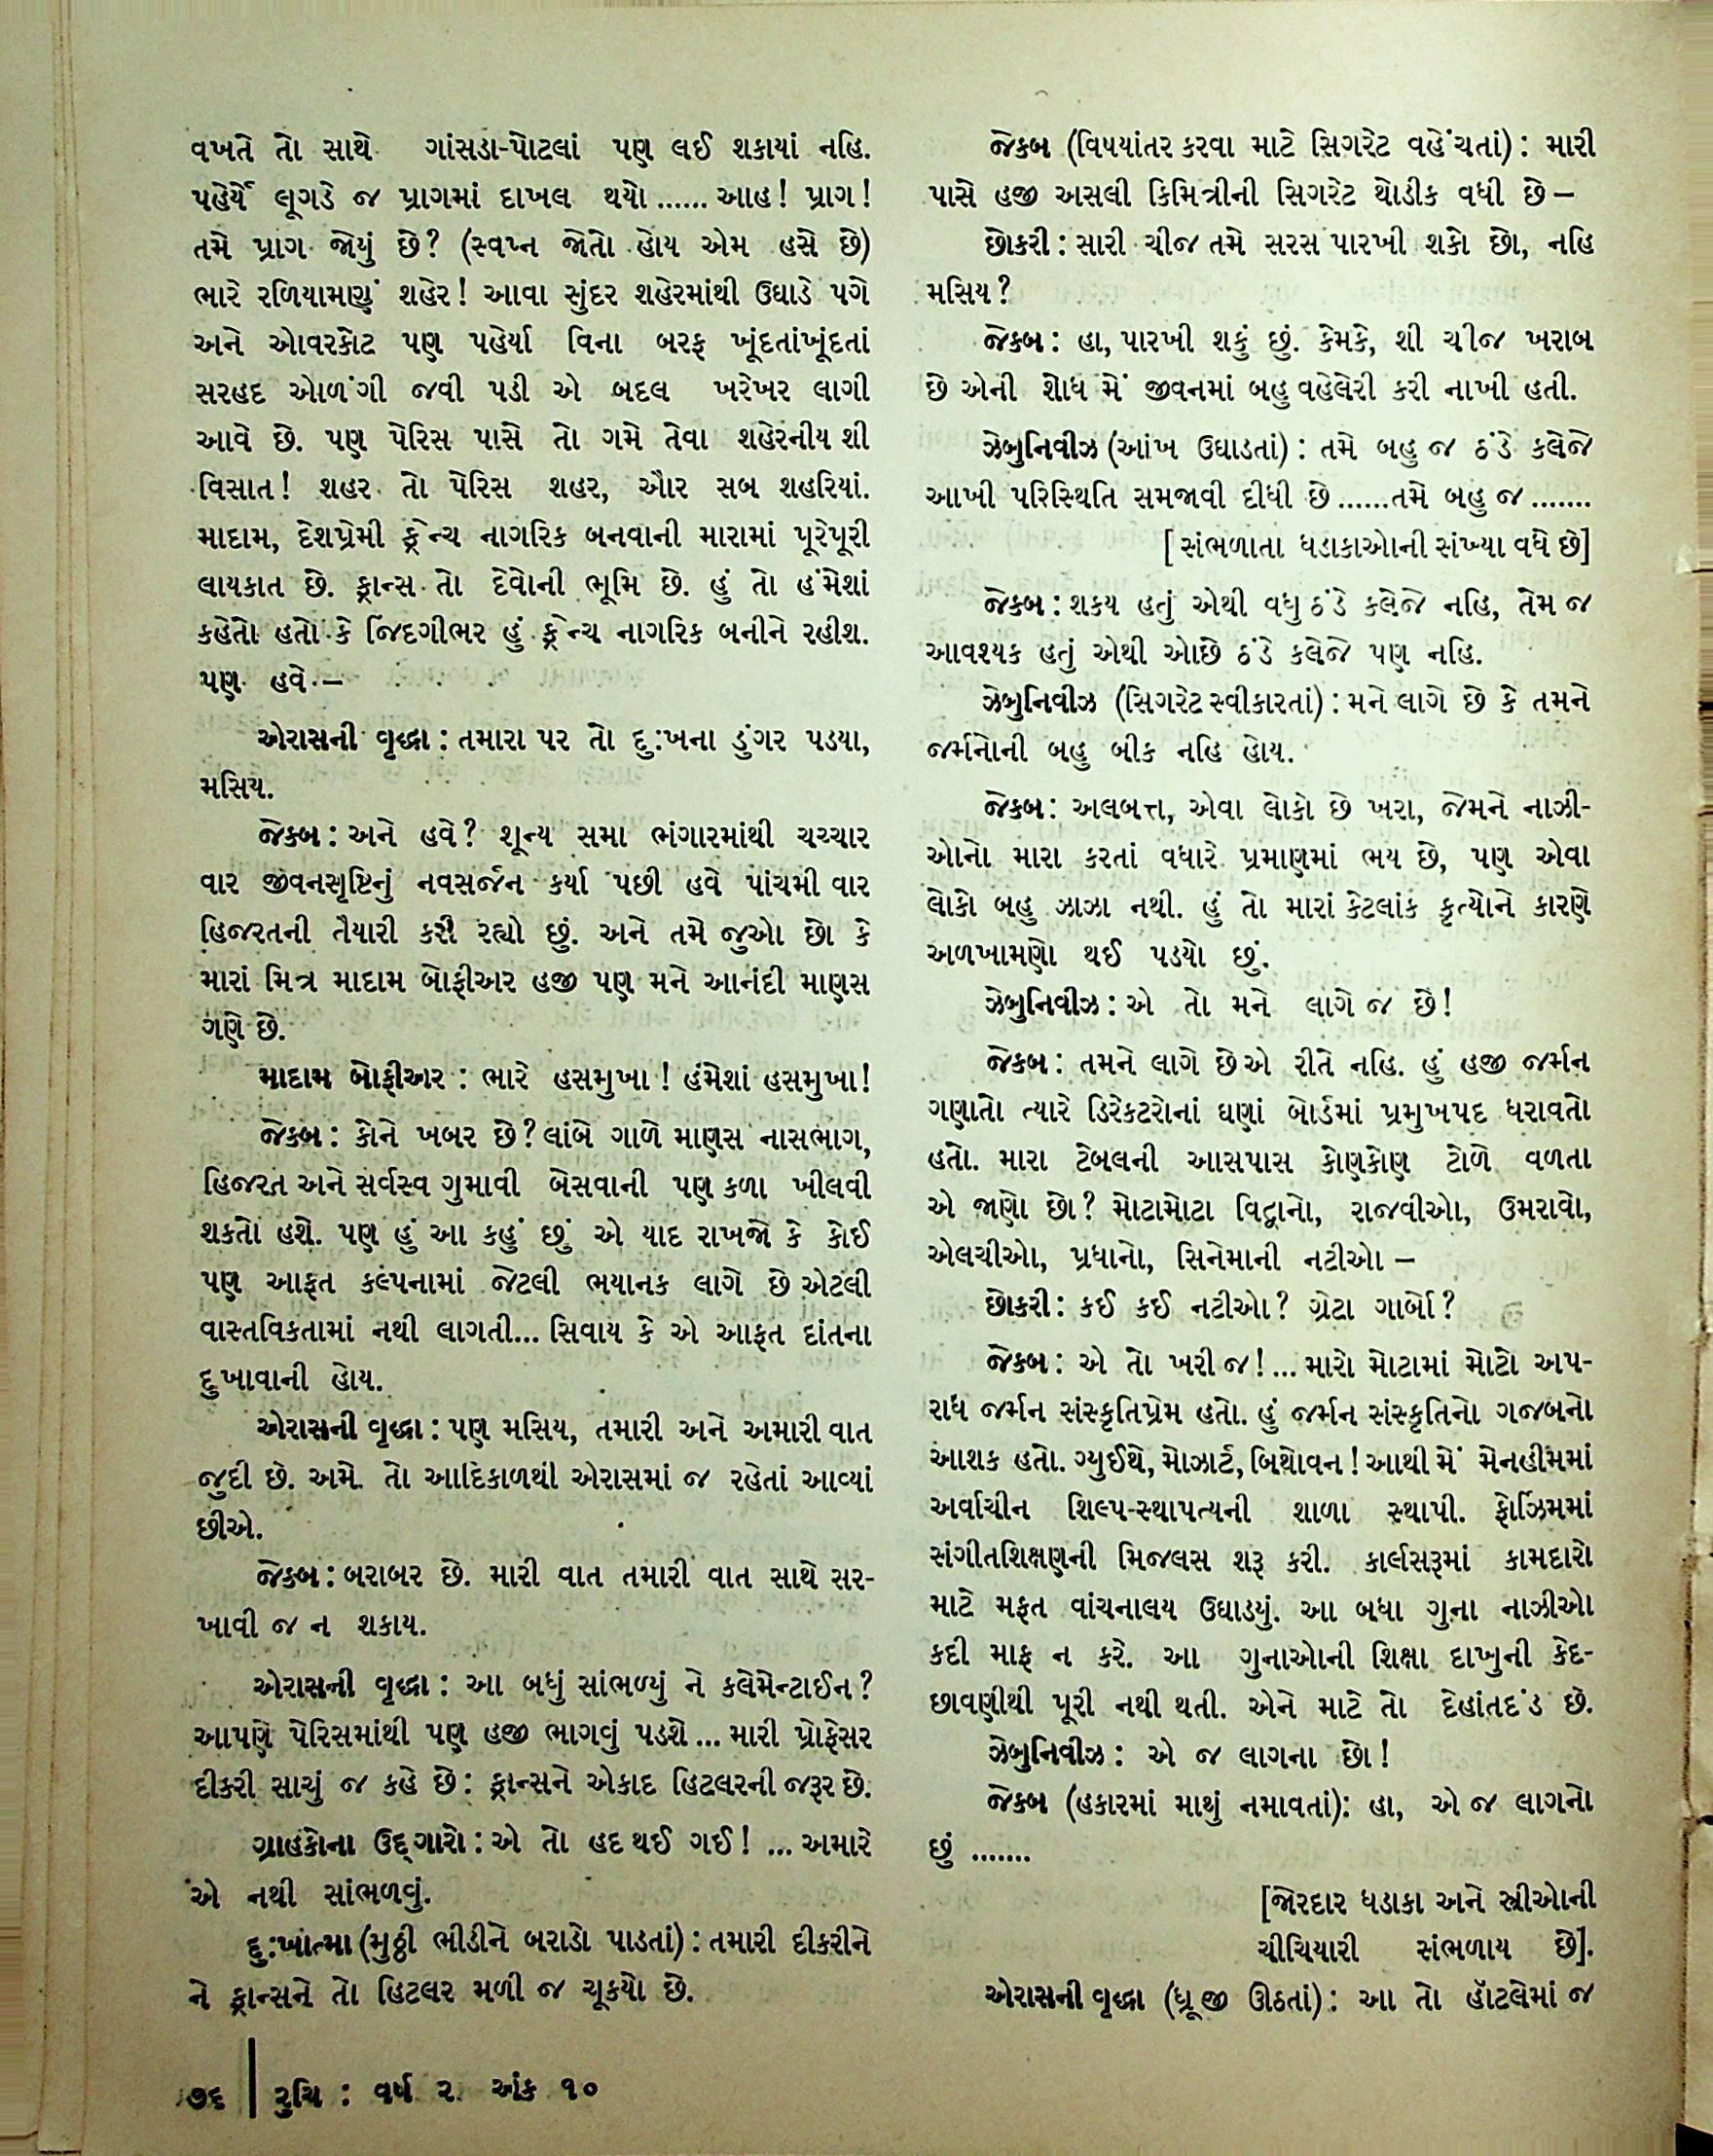 વખતે તો સાથે ગાંસડા-પોટલાં પણ લઈ શકાયાં નહિ.
પહેર્યે લૂગડે જ પ્રાગમાં દાખલ થયો...... આહ! પ્રાગ!
તમે પ્રાગ જોયું છે? (સ્વપ્ન જોતો હોય એમ હસે છે)
ભારે રળિયામણું શહેર! આવા સુંદર શહેરમાંથી ઉઘાડે પગે
અને ઓવરકોટ પણ પહેર્યા વિના બરફ ખૂંદતાંખૂંદતાં
સરહદ ઓળંગી જવી પડી એ બદલ ખરેખર લાગી
આવે છે. પણ પેરિસ પાસે તો ગમે તેવા શહેરનીય શી
વિસાત! શહર તો પેરિસ શહર, ઔર સબ શહરિયાં.
માદામ, દેશપ્રેમી ફ્રેન્ચ નાગરિક બનવાની મારામાં પૂરેપૂરી
લાયકાત છે. ફ્રાન્સ તો દેવોની ભૂમિ છે. હું તો હંમેશાં
કહેતો હતો કે જિંદગીભર હું ફ્રેન્ચ નાગરિક બનીને રહીશ.
પણ હવે –
એરાસની વૃદ્ધા : તમારા પર તો દુઃખના ડુંગર પડયા,
મસિય.
જેકબ : અને હવે? શૂન્ય સમા ભંગારમાંથી ચચ્ચાર
વાર જીવનસૃષ્ટિનું નવસર્જન કર્યા પછી હવે પાંચમી વાર
હિજરતની તૈયારી કરી રહ્યો છું. અને તમે જુઓ છો કે
મારાં મિત્ર માદામ બોફીઅર હજી પણ મને આનંદી માણસ
ગણે છે.
માદામ બોફીઅર : ભારે હસમુખા! હંમેશાં હસમુખા!
જેકબ : કોને ખબર છે? લાંબે ગાળે માણસ નાસભાગ,
હિજરત અને સર્વસ્વ ગુમાવી બેસવાની પણ કળા ખીલવી
શકતો હશે. પણ હું આ કહું છું એ યાદ રાખજો કે કોઈ
પણ આફત કલ્પનામાં જેટલી ભયાનક લાગે છે એટલી
વાસ્તવિકતામાં નથી લાગતી... સિવાય કે એ આફત દાંતના
દુખાવાની હોય.
એરાસની વૃદ્ધા : પણ મસિય, તમારી અને અમારી વાત
જુદી છે. અમે તો આદિકાળથી એરાસમાં જ રહેતાં આવ્યાં
છીએ.
જેકબ : બરાબર છે. મારી વાત તમારી વાત સાથે સર-
ખાવી જ ન શકાય.
એરાસની વૃદ્ધા : આ બધું સાંભળ્યું ને કલેમેન્ટાઈન?
આપણે પેરિસમાંથી પણ હજી ભાગવું પડશે... મારી પ્રોફેસર
દીકરી સાચું જ કહે છે : ફ્રાન્સને એકાદ હિટલરની જરૂર છે.
ગ્રાહકોના ઉદ્ગારો : એ તો હદ થઈ ગઈ! ... અમારે
એ નથી સાંભળવું.
દુઃખાત્મા (મુઠ્ઠી ભીડીને બરાડો પાડતાં) : તમારી દીકરીને
ને ફ્રાન્સને તો હિટલર મળી જ ચૂકયો છે.
૭૬ | રુચિ : વર્ષ ૨ અંક ૧૦
જેકબ (વિષયાંતર કરવા માટે સિગરેટ વહેંચતાં) : મારી
પાસે હજી અસલી કિમિત્રીની સિગરેટ થોડીક વધી છે –
છોકરી : સારી ચીજ તમે સરસ પારખી શકો છો, નહિ
મસિય?
જેકબ : હા, પારખી શકું છું. કેમકે, શી ચીજ ખરાબ
છે એની શોધ મેં જીવનમાં બહુ વહેલેરી કરી નાખી હતી.
ઝેબુનિવીઝ (આંખ ઉઘાડતાં) : તમે બહુ જ ઠંડે કલેજે
આખી પરિસ્થિતિ સમજાવી દીધી છે......તમે બહુ જ.......
[સંભળાતા ધડાકાઓની સંખ્યા વધે છે]
જેકબ : શકય હતું એથી વધુ ઠંડે કલેજે નહિ, તેમ જ
આવશ્યક હતું એથી ઓછે ઠંડે કલેજે પણ નહિ.
ઝેબુનિવીઝ (સિગરેટ સ્વીકારતાં) : મને લાગે છે કે તમને
જર્મનોની બહુ બીક નહિ હોય.
જેકબ : અલબત્ત, એવા લોકો છે ખરા, જેમને નાઝી-
ઓનો મારા કરતાં વધારે પ્રમાણમાં ભય છે, પણ એવા
લોકો બહુ ઝાઝા નથી. હું તો મારાં કેટલાંક કૃત્યોને કારણે
અળખામણો થઈ પડયો છું.
ઝેબુનિવીઝ : એ તો મને લાગે જ છે!
જેકબ : તમને લાગે છે એ રીતે નહિ. હું હજી જર્મન
ગણાતો ત્યારે ડિરેકટરોનાં ઘણાં બોર્ડમાં પ્રમુખપદ ધરાવતો
હતો. મારા ટેબલની આસપાસ કોણકોણ ટોળે વળતા
એ જાણો છો? મોટામોટા વિદ્વાનો, રાજવીઓ, ઉમરાવો,
એલચીઓ, પ્રધાનો, સિનેમાની નટીઓ –
છોકરી : કઈ કઈ નટીઓ? ગ્રેટા ગાર્બો?
જેકબ : એ તો ખરી જ!... મારો મોટામાં મોટો અપ-
રાધ જર્મન સંસ્કૃતિપ્રેમ હતો. હું જર્મન સંસ્કૃતિનો ગજબનો
આશક હતો. ગ્યુઈથે, મોઝાર્ટ, બિથોવન! આથી મેં મેનહીમમાં
અર્વાચીન શિલ્પ-સ્થાપત્યની શાળા સ્થાપી. ફોર્ઝિમમાં
સંગીતશિક્ષણની મિજલસ શરૂ કરી. કાર્લસરૂમાં કામદારો
માટે મફત વાંચનાલય ઉઘાડયું. આ બધા ગુના નાઝીઓ
કદી માફ ન કરે. આ ગુનાઓની શિક્ષા દાખુની કેદ-
છાવણીથી પૂરી નથી થતી. એને માટે તો દેહાંતદંડ છે.
ઝેબુનિવીઝ : એ જ લાગના છો!
જેકબ (હકારમાં માથું નમાવતાં): હા, એ જ લાગનો
છું .......
[જોરદાર ધડાકા અને સ્ત્રીઓની
ચીચિયારી સંભળાય છે].
એરાસની વૃદ્ધા (ધ્રૂજી ઊઠતાં) : આ તો હૉટલેમાં જ